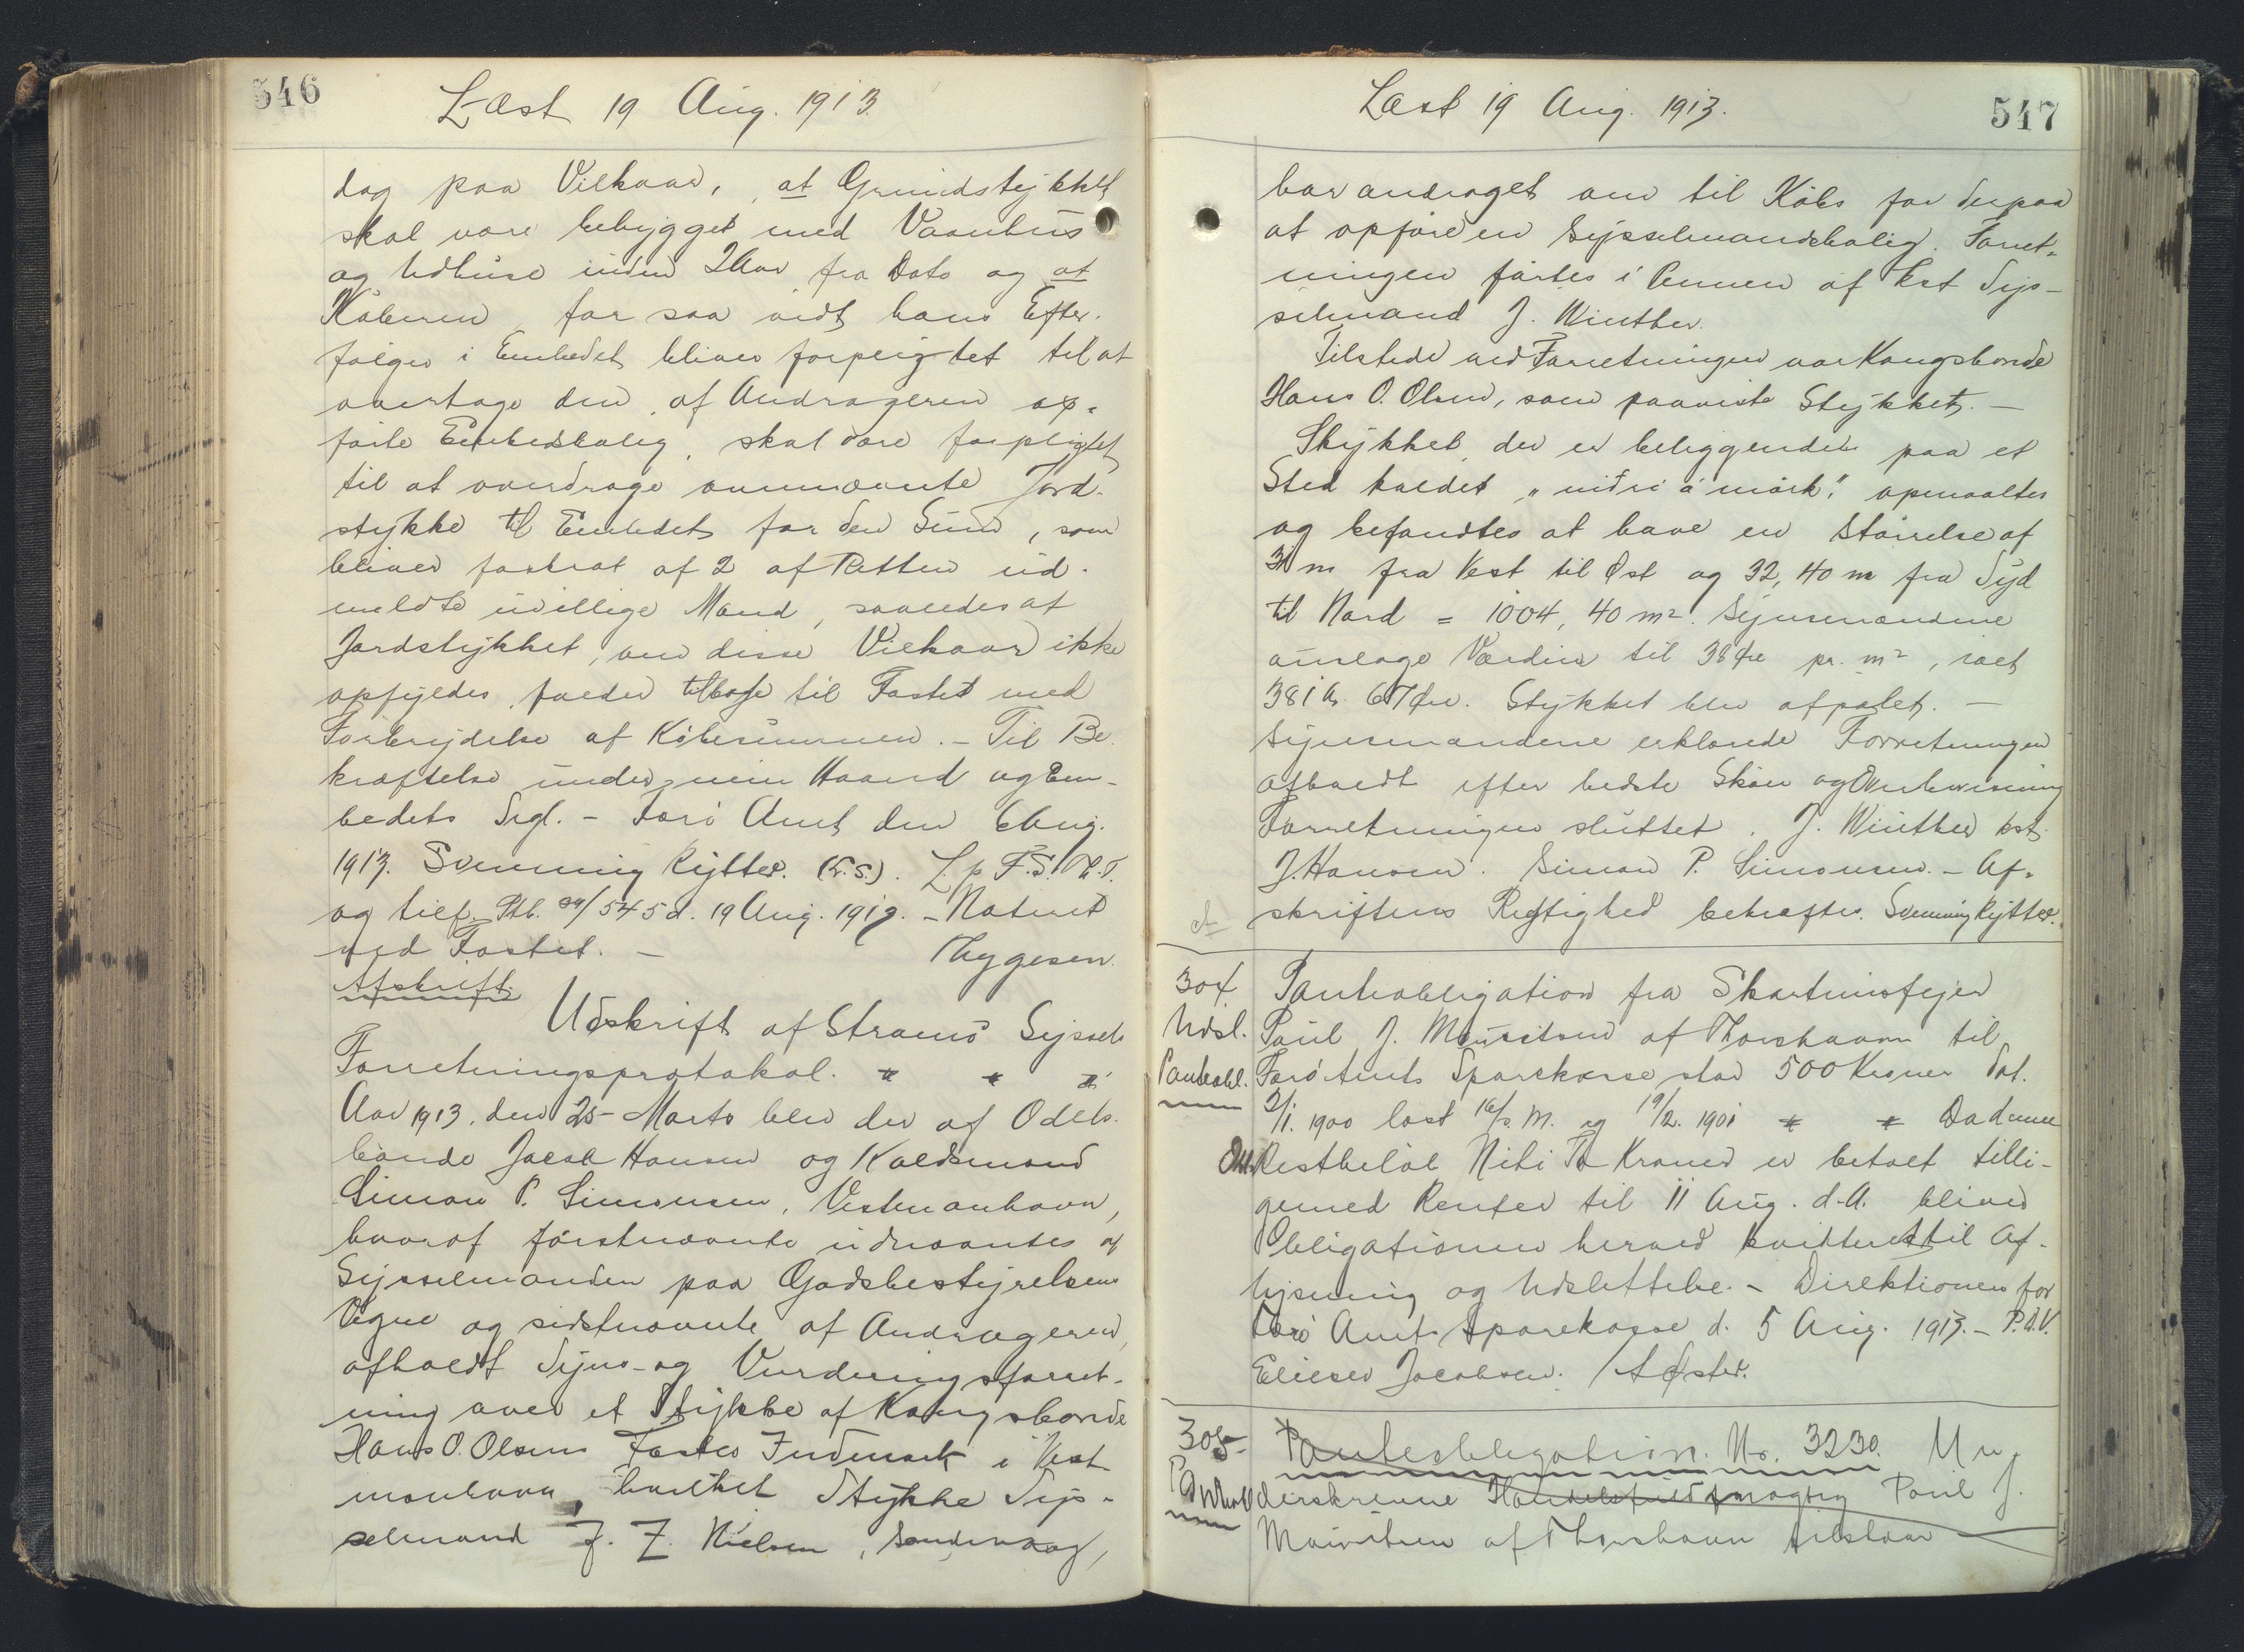 546
Læst 19 Aug. 1913
dag paa Vilkaar, at Grundstykket
skal være bebygget med Vaanhus
og Udhuse inden 2 Aar fra Dato og at
Køberen, for saa vidt hans Efter-
følger i Embedet bliver forpligtet til at
overtage den af Andrageren op-
førte Embedsbolig, skal være forpligtet
til at overdrage ovennævnte Jord-
stykke til Embedet for den Sum, som
bliver fastsat af 2 af Retten ud-
meldte uvillige Mænd, saaledes at
Jordstykket, om disse Vilkaar ikke
opfyldes, falder tilbage til Fæstet med
Fortrydelse af Købesummen. – Til Be-
kræftelse under min Haand og Em-
bedets Segl. – Færø Amt den 6 Aug.
1913. Svenning Rytter. (L.S.). L. p F.S. Th. T.
og tilf. Ptb. 24/545 d. 19 Aug. 1913. – Noteret
ved Fæstet. – Thygesen.
Afskrift.
Udskrift af Strømø Syssels
Forretningsprotokol.
Aar 1913, den 25 Marts blev der af Odels-
bonde Jacob Hansen og Kaldsmand
Simon P. Simonsen, Vestmanhavn,
hvoraf førstnævnte udnævntes af
Sysselmanden paa Godsbestyrelsens
Vegne og sidstnævnte af Andrageren,
afholdt Syns- og Vurderingsforret-
ning over et Stykke af Kongsbonde
Hans O. Olsens Fæstes Indmark i Vest-
manhavn, hvilket Stykke Sys-
selmand J. Z. Nielsen, Sandevaag,
Læst 19 Aug. 1913.
547
har andraget om til Købs for derpaa
at opføre en Sysselmandsbolig. Forret-
ningen førtes i Pennen af kst Sys-
selmand J. Winther.
Tilstede ved Forretningen var Kongsbonde
Hans O. Olsen, som paaviste Stykket. –
Stykket, der er beliggende paa et
Sted kaldet "niðri á mørk", opmaaltes
og befandtes at have en Størrelse af
31 m fra Vest til Øst og 32,40 m fra Syd
til Nord = 1004,40 m². Synsmændene
ansloge Værdien til 38 Øre pr. m², ialt
381 Kr. 67 Øre. Stykket blev afpælet. –
Synsmændene erklærede Forretningen
afholdt efter bedste Skøn og Overbevisning
Forretningen sluttet. J. Winther kst.
J. Hansen. Simon P. Simonsen. – Af-
skriftens Rigtighed bekræftes. Svenning Rytter.
304 Panteobligation fra Skorstensfejer
Udsl. Poul J. Mouritsen af Thorshavn til
Panteobl. Færø Amts Sparekasse stor 500 Kroner dat.
2/1. 1900 læst 16/s. M. og 19/2. 1901 Da denne
Restbeløb Niti To Kroner er betalt tilli-
gemed Renter til 11 Aug. d.A. bliver
Obligationen herved kvitteret til Af-
lysning og Udslettelse. – Direktionen for
Færø Amts Sparekasse d. 5 Aug. 1913. – P.D.V.
Elieser Jacobsen. / A Øster.
305 Panteobligation. No. 3230. Un-
Panteobl derskrevne Poul J.
Mouritsen af Thorshavn tilstaar